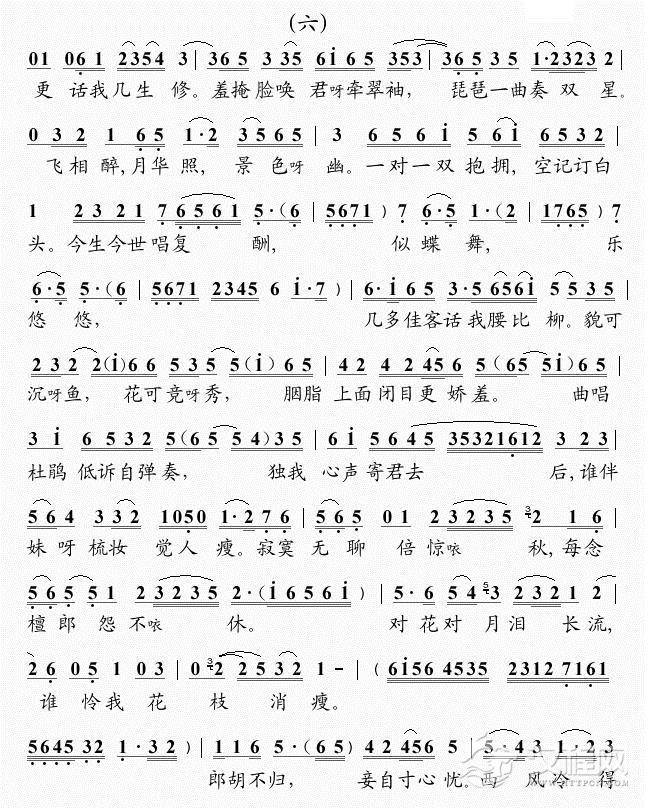 (六)
01 06 1 2354 3 | 365 335 6i65 353 | 365 35 1·2323 2
更 话我几生 修。羞掩脸唤 君呀牵翠袖, 琵琶一曲奏 双 星。
0 3 2 1 6 5 1·2 3565 | 3 656i 56i 6532
飞相醉,月华 照, 景 色呀 幽。一对一双 抱拥,空记订白
1 2321 76561 5·(6 | 5671) 7 6·5 1·(2 | 1765) 7
头。今生今世唱复 酬, 似 蝶 舞, 乐
6·5 5·(6 | 5671 2345 6 i·7) | 6·i65 3·5656i 5535
悠 悠, 几多佳客话我腰比 柳。貌可
232 2(i)66 535 5(i)65 | 42 4245 5(65 5i)65
沉呀鱼, 花可竞呀秀, 胭脂 上面闭目更 娇羞。 曲唱
3 i 6532 5(65 54)35 | i 6 5645 35321612 3 23
杜鹃 低诉自弹奏, 独我 心声寄君去 后,谁伴
564 332 1050 1·276 | 565 01 23235 3 2 1 6
妹呀梳妆 觉人 瘦。寂寞 无聊 倍惊咴 秋,每念
565 51 23235 2·(i656i) | 5·6 54 5 3 2321 2
檀郎 怨不咴 休。 对花对 月泪 长流,
26 051 03 | 0 3 2 2532 1 - | (6i56 4535 2312 7161
谁 怜我 花 枝 消 瘦。
5645 32 1·32) | 116 5·(65) 42456 | 5·43 1·23
郎胡不归, 妾自寸心忧。西 风冷 得